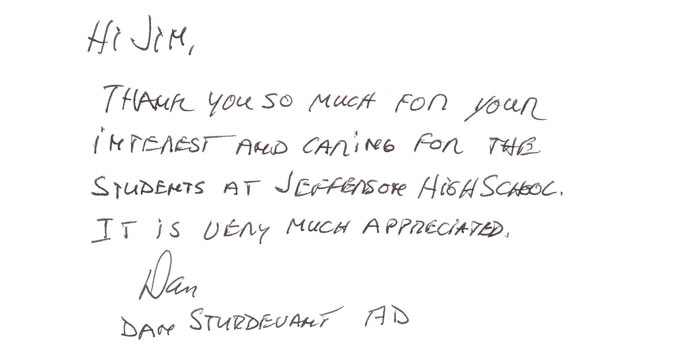 Hi Jim,
THANK YOU SO MUCH FOR YOUR
INTEREST AND CARING FOR THE
STUDENTS AT JEFFERSON HIGH SCHOOL.
IT IS VERY MUCH APPRECIATED.
Dan
DAN STURDEVANT AD